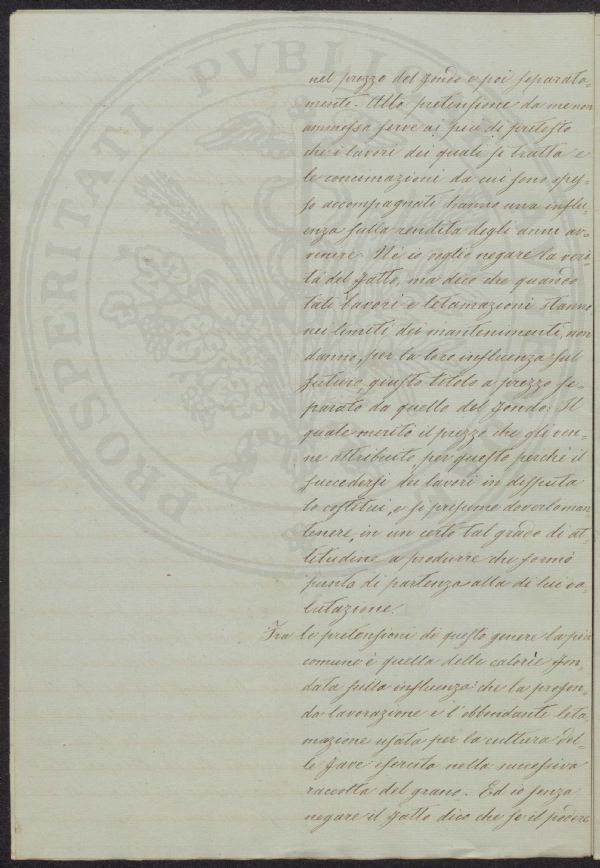 PROSPERITATI PUBLIC
nel prezzo del fondo e poi separata-
mente. Alla pretensione da menon
ammessa serve ai più di pretesto
che i lavori dei quali si tratta e
le concimazioni da cui sono spes-
so accompagnati hanno una influ-
enza sulla rendita degli anni av-
venire. Nè io voglio negare la veri-
tà del fatto, ma dico che quando
tali lavori e letamazioni stanno
nei limiti dei mantenimenti, non
danno, per la loro influenza sul
futuro, giusto titolo a prezzo se-
parato da quello del fondo. Il
quale meritò il prezzo che gli ven-
ne attribuito per questo perchè il
succedersi dei lavori in disputa
lo costituì, e si presume doverlo man
tenere, in un certo tal grado di at
titudine a produrre che formò
punto di partenza alla di lui va-
lutazione.
Fra le pretensioni di questo genere la più
comune è quella delle calorìe fon-
data sulla influenza che la profon-
da lavorazione e l'abbondante leta-
mazione usata per la cultura del-
le fave esercita nella successiva
raccolta del grano. Ed io senza
negare il fatto dico che se il podere